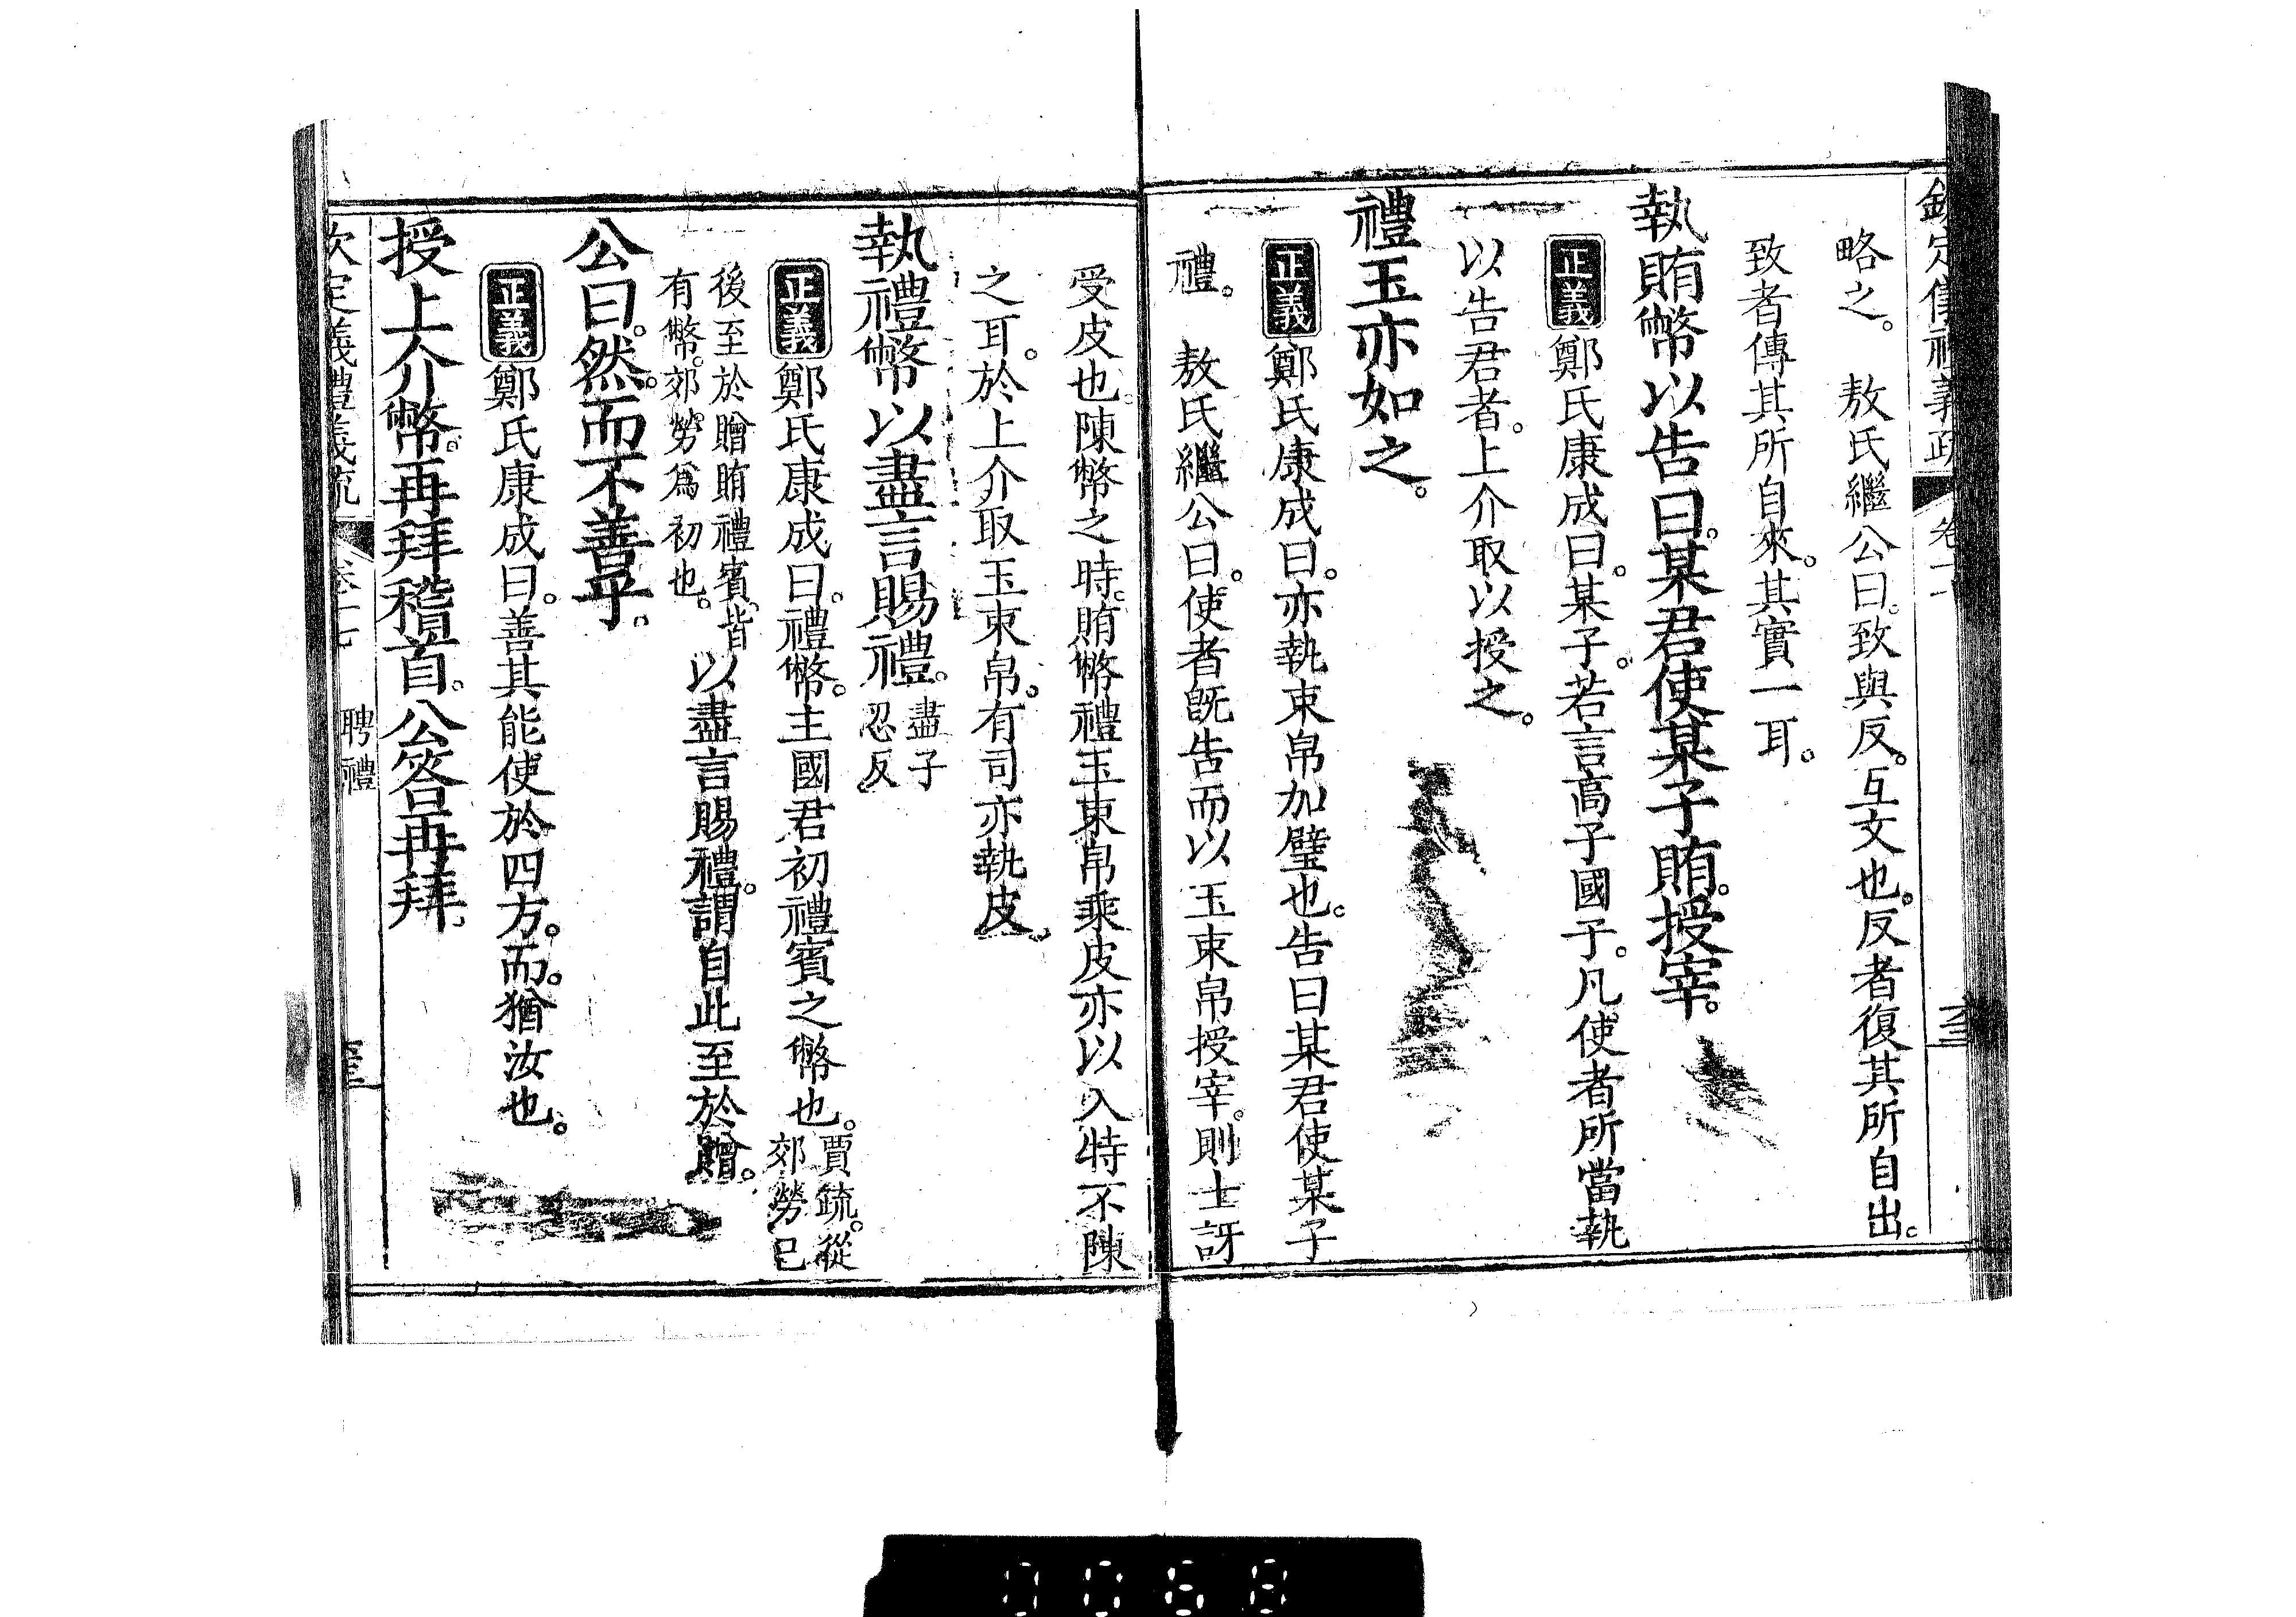 欽定儀禮義疏
略之。 敖氏繼公曰。致與反。互文也。反者復其所自出。
致者傳其所自來。其實一耳。
執賄幣以告曰。某君使某子賄。授宰。
正義鄭氏康成曰。某子。若言高子國子。凡使者所當執
以告君者。上介取以授之。
禮玉亦如之。
正義鄭氏康成曰。亦執束帛加璧也。告曰某君使某子
禮。 敖氏繼公曰。使者既告而以玉束帛授宰。則士訝
受皮也。陳幣之時。賄幣禮玉束帛乘皮亦以入。特不陳
之耳。於上介取玉束帛。有司亦執皮。
執禮幣以盡言賜禮。盡子忍反。
正義鄭氏康成曰。禮幣。主國君初禮賓之幣也。賈疏。從郊勞已
後至於贈賄禮賓。皆有幣。郊勞爲初也。以盡言賜禮。謂自此至於贈。
公曰。然。而不善乎。
正義鄭氏康成曰。善其能使於四方。而。猶汝也。
授上介幣。再拜稽首。公答再拜。
欽定義禮義疏
聘禮
0068